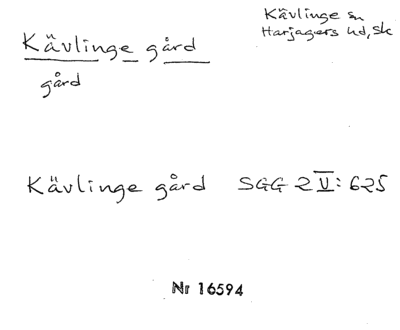 Kävlinge gård
Kävlinge sn
Harjagers hd, Sk
gård
Kävlinge gård SGG 2 V: 625
Nr 16594